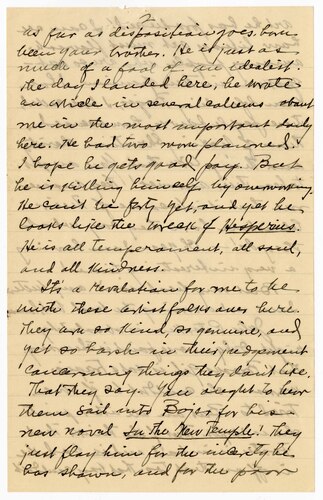 2
as far as disposition goes, have
been your brother. He is just as
much of a fool of an idealist.
The day I landed here, he wrote
an article in several colums about
me in the most important daily
here. He had two more planned.
I hope he gets good pay. But
he is killing himself by overworking.
He can't be forty yet, and yet he
looks like the wreck of Hesperius.
He is all temperament, all soul,
and all kindness.
It's a revelation for me to be
with these artist folks over here.
They are so kind, so genuine, and
yet so harsh in their judgement
concerning things they don't like.
That they say. You ought to hear
them sail into Bojer for his
new novel In the New Temple! They
just flay him for the he
has shown, and for the poor